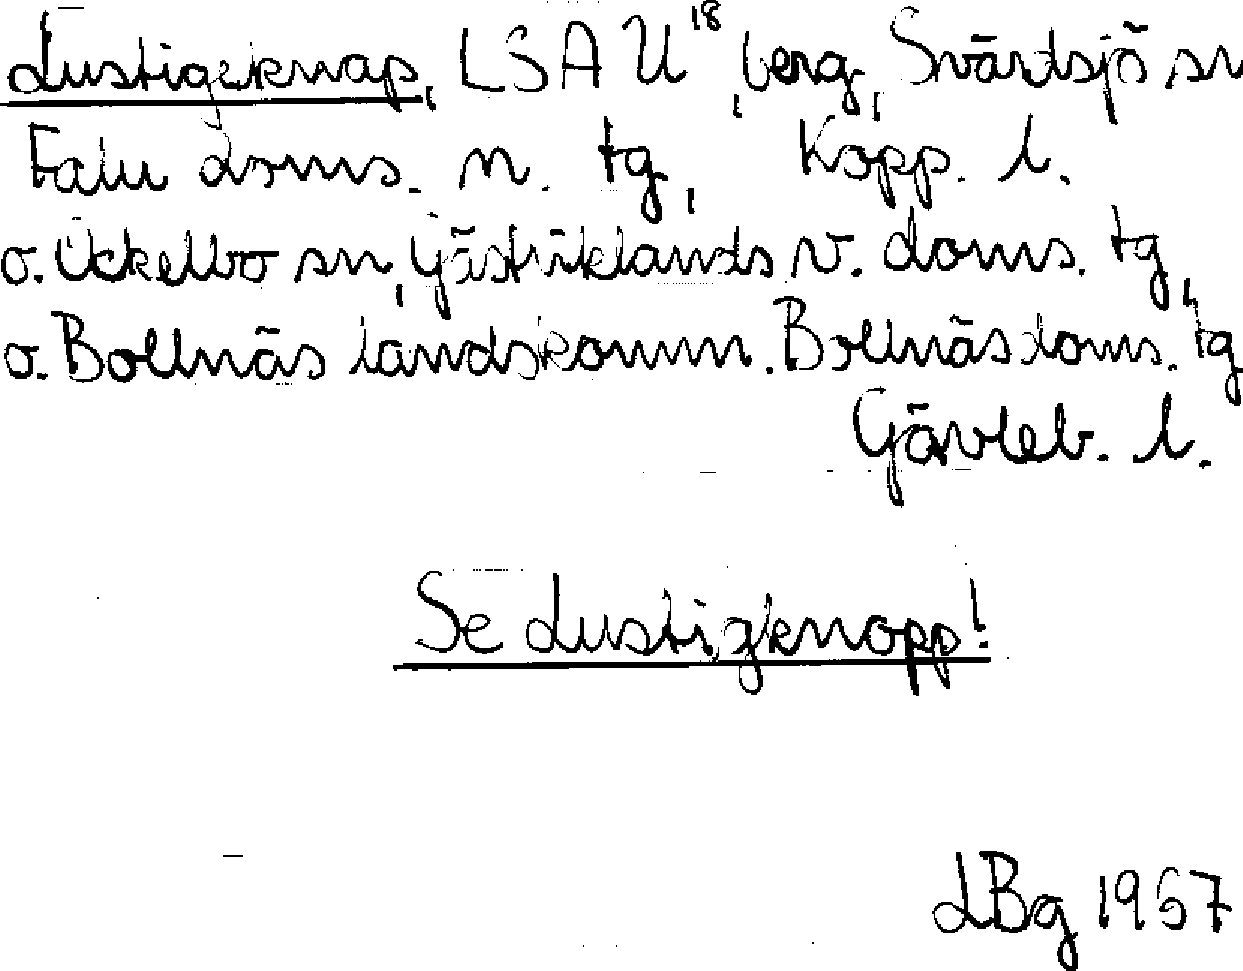 Lustigeknap, LSA U18, berg, Svärdsjö sn
Falu doms. n. tg, Kopp. l.
o. Ockelbo sn, Gästriklands v. doms. tg,
o. Bollnäs landskomm. Bollnäs doms. tg
Gävleb. l.
Se Lustigknopp!
LBg 1967